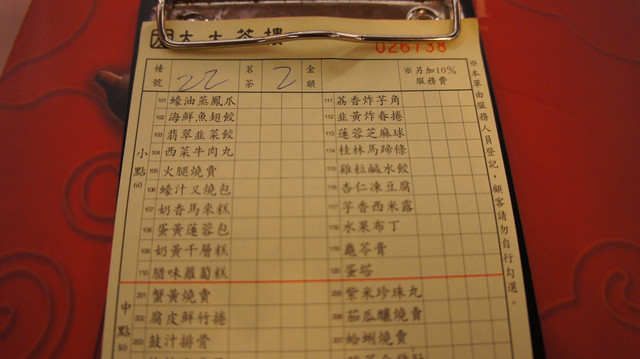 大大茶樓
026738
檯號 22 茗茶 2 金額 ※另加10%服務費
小點60
101 蠔油蒸鳳爪
102 海鮮魚翅餃
103 翡翠韭菜餃
104 西菜牛肉丸
105 火腿燒賣
106 蠔汁叉燒包
107 奶香馬來糕
108 蛋黃蓮蓉包
109 奶黃千層糕
110 腊味蘿蔔糕
111 荔香炸芋角
112 韭黃炸春捲
113 蓮蓉芝麻球
114 桂林馬蹄條
115 雞粒鹹水餃
116 杏仁凍豆腐
117 芋香西米露
118 水果布丁
119 龜苓膏
120 蛋塔
中點80
201 蟹黃燒賣
202 腐皮鮮竹捲
203 豉汁排骨
205 紫米珍珠丸
206 茄瓜釀燒賣
207 蛤蜊燒賣
※本單由服務人員登記，顧客請勿自行勾選。